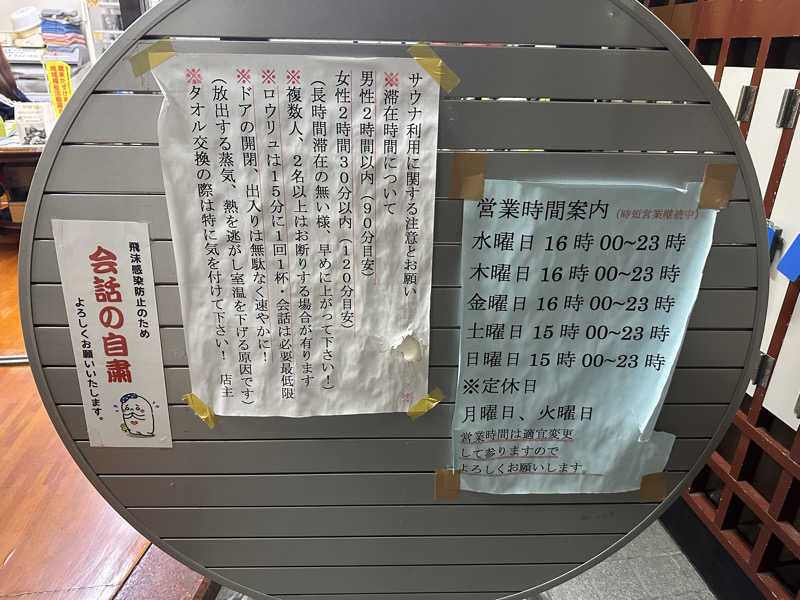 飛沫感染防止のため
会話の自粛
よろしくお願いいたします。
サウナ利用に関する注意とお願い
※滞在時間について
男性2時間以内（90分目安）
女性2時間30分以内（120分目安）
（長時間滞在の無い様、早めに上がって下さい！）
※複数人、2名以上はお断りする場合が有ります
※ロウリュは15分に1回1杯・会話は必要最低限
※ドアの開閉、出入りは無駄なく速やかに！
（放出する蒸気、熱を逃がし室温を下げる原因です）
※タオル交換の際は特に気を付けて下さい！　店主
※
営業時間案内（時短営業継続中）
水曜日 16時00~23時
木曜日 16時00~23時
金曜日 16時00~23時
土曜日 15時00~23時
日曜日 15時00~23時
※定休日
月曜日、火曜日
営業時間は適宜変更
して参りますので
よろしくお願いします。